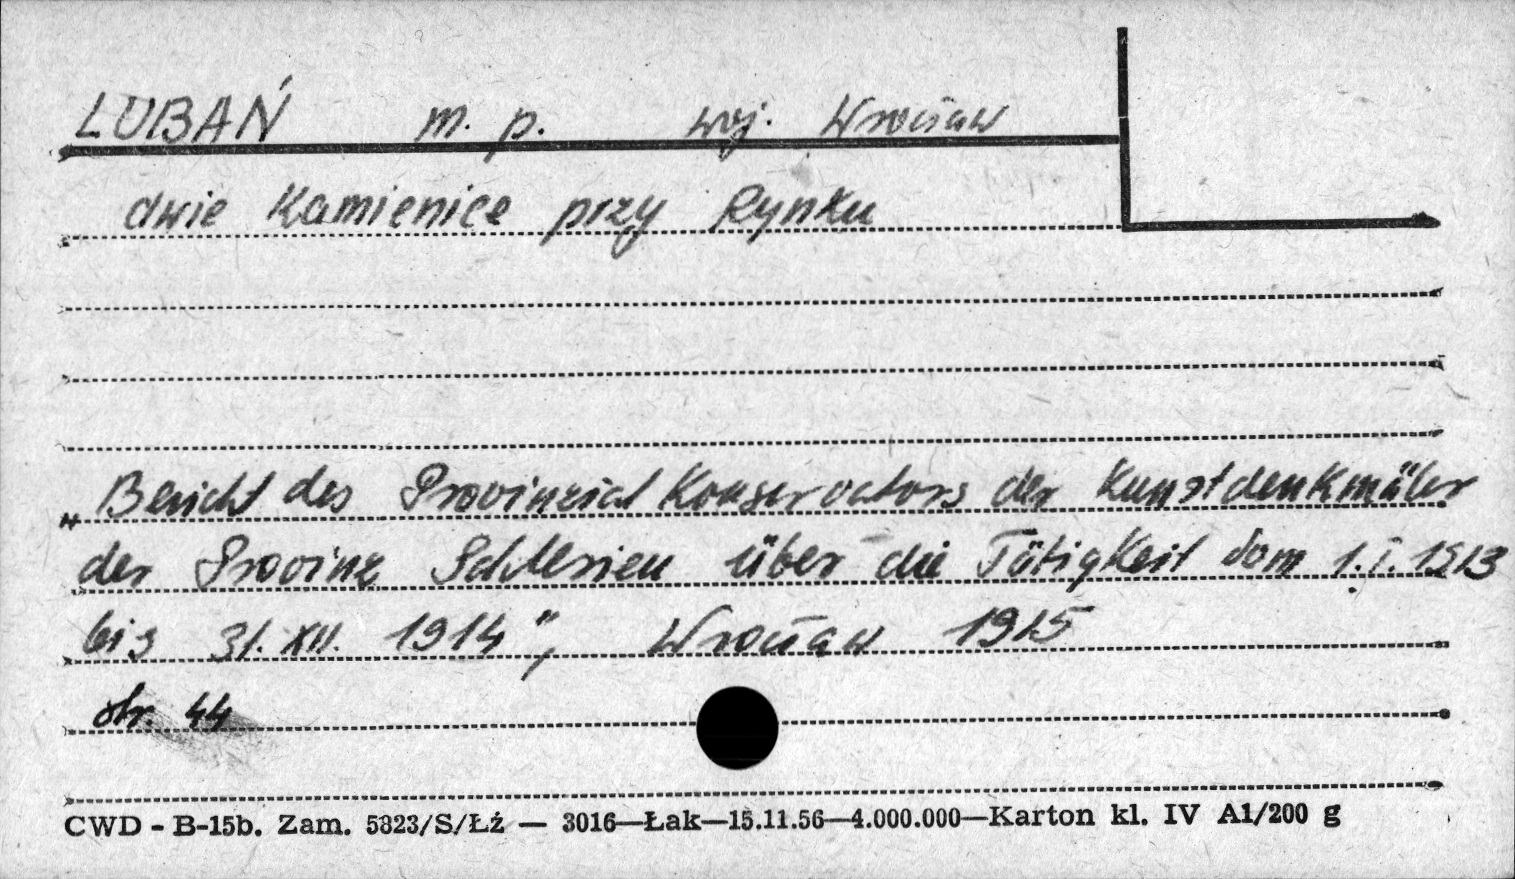 LUBAŃ m. p. woj. Wrocław
dwie Kamienice przy Rynku
"Bericht des Provinzial Konservators der Kunstdenkmäler
der Provinz Schlesien über die Tätigkeit vom 1.I.1913
bis 31.XII. 1914", Wrocław 1915
str. 44
CWD - B-15b. Zam. 5823/S/Łż — 3016—Łak—15.11.56—4.000.000—Karton kl. IV A1/200 g